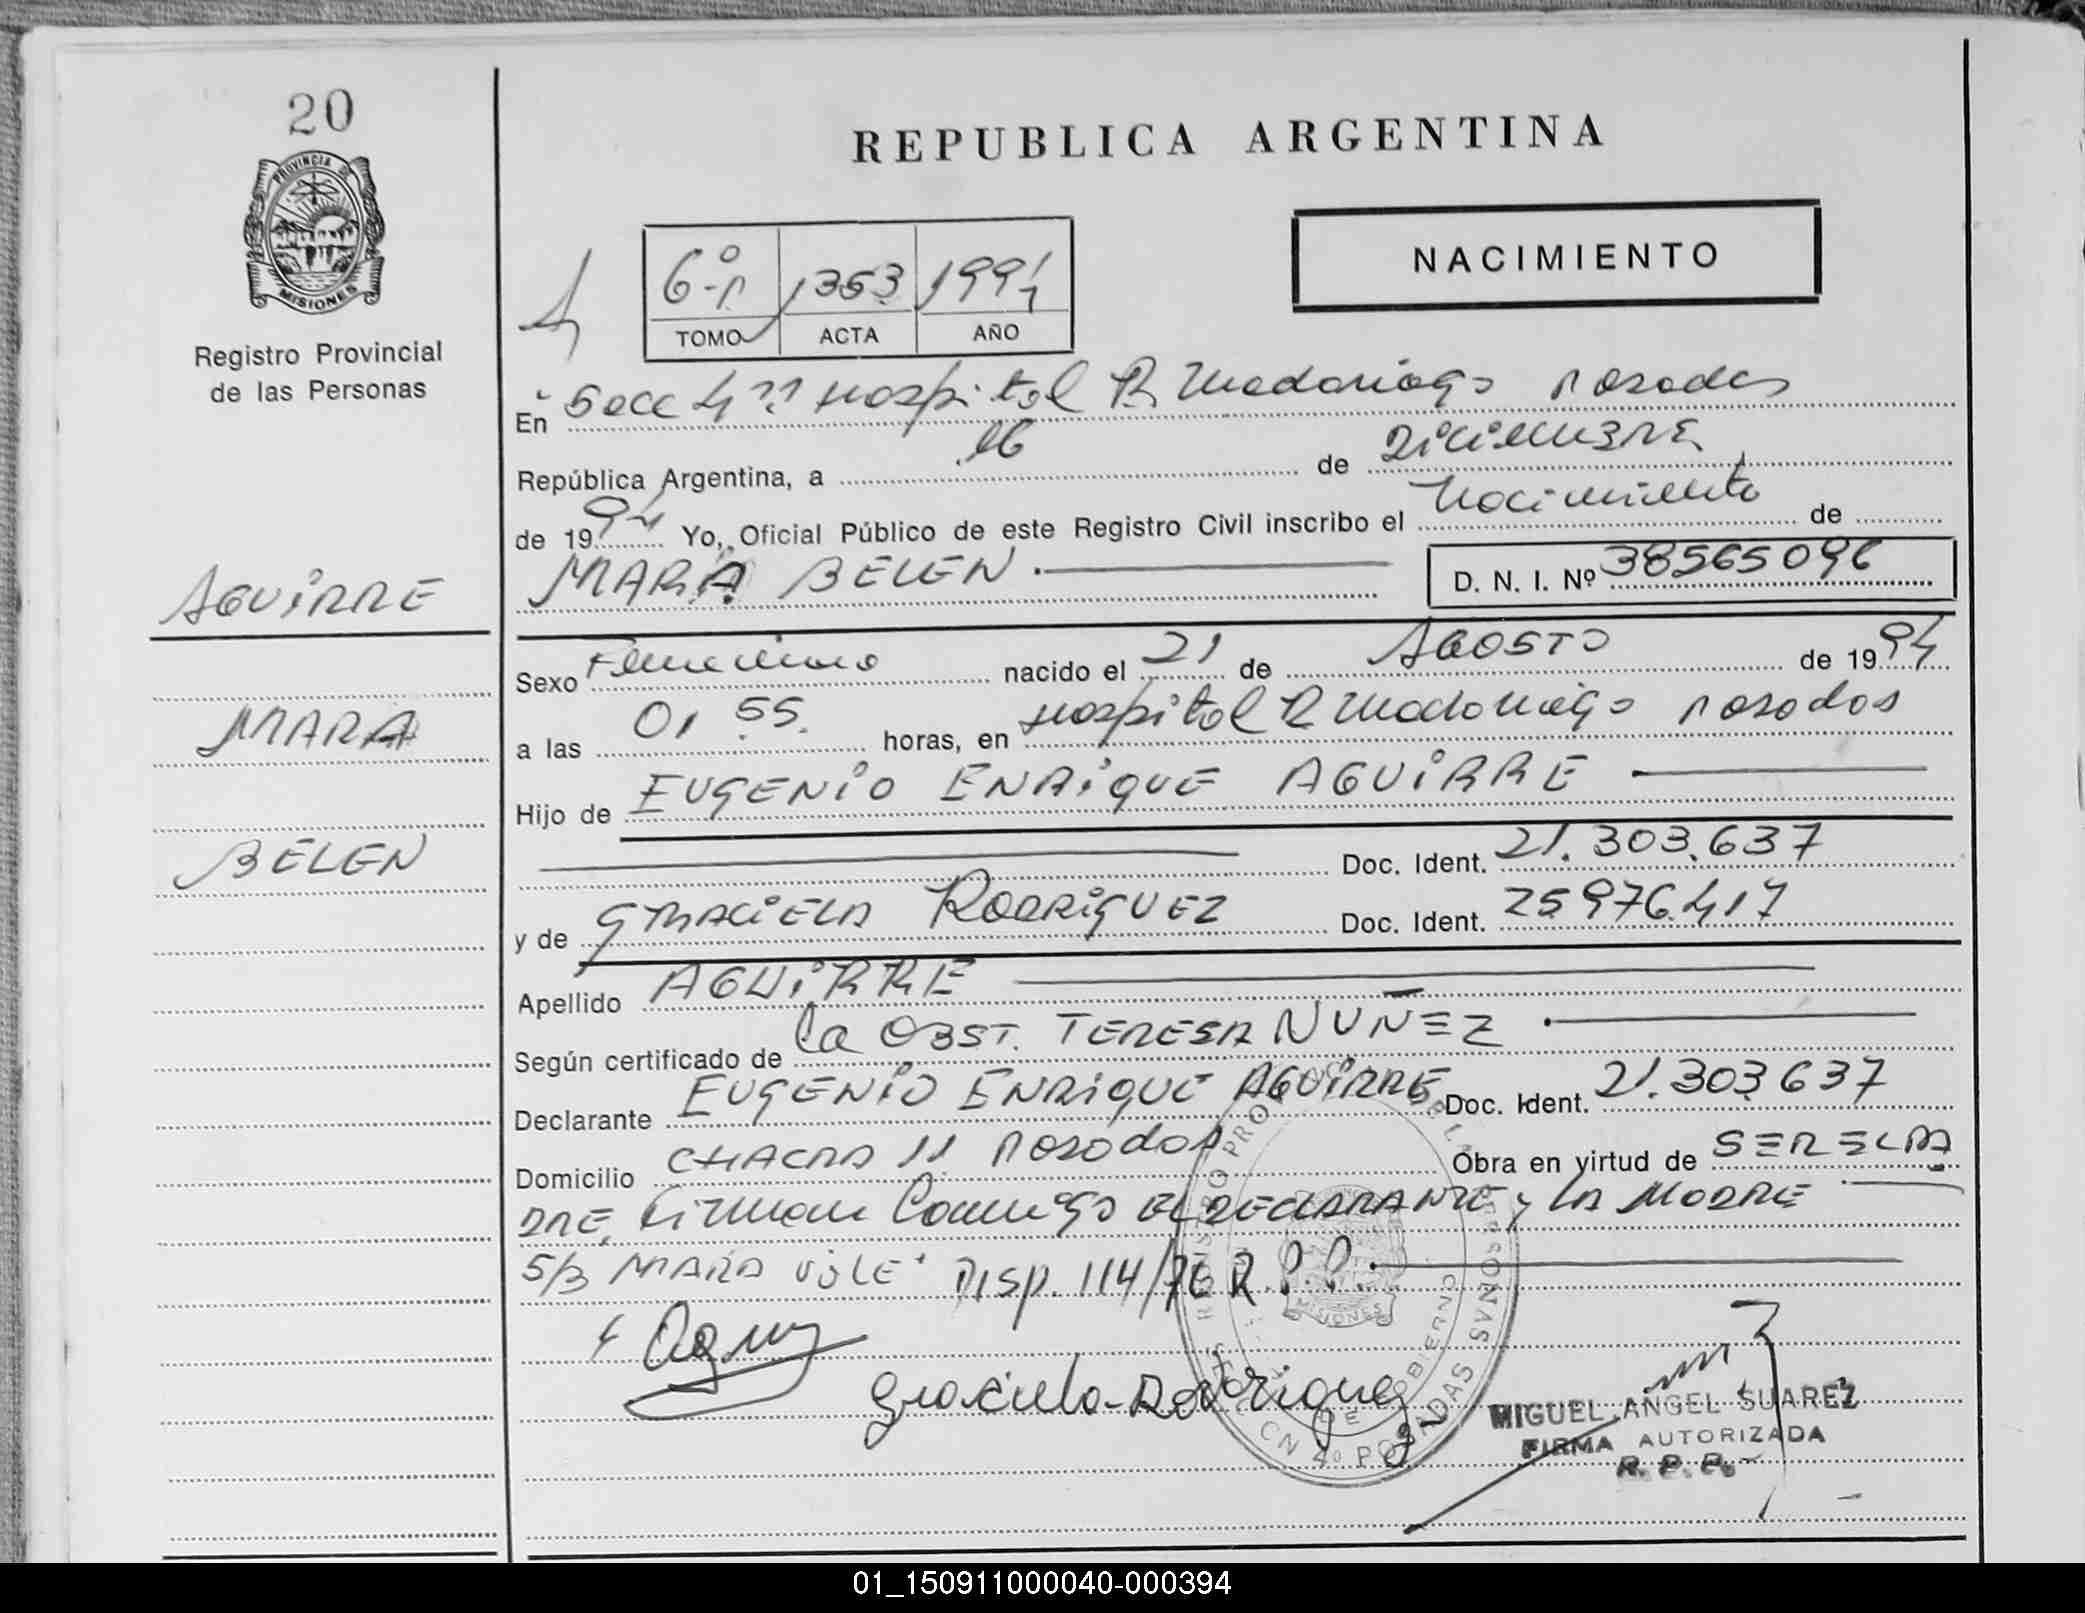 20
PROVINCIA DE
MISIONES
Registro Provincial
de las Personas
AGUIRRE
MARA
BELEN
REPUBLICA ARGENTINA
NACIMIENTO
6º 1353 1994
TOMO ACTA AÑO
En Secc 4ª Hospital R Madariaga Posadas
República Argentina, a 16 de DICIEMBRE
de 1994 Yo, Oficial Público de este Registro Civil inscribo el Nacimiento de
MARA BELEN D. N. I. Nº 38565096
Sexo Femenino nacido el 21 de AGOSTO de 1994
a las 01 55 horas, en Hospital R Madariaga Posadas
Hijo de EUGENIO ENRIQUE AGUIRRE
Doc. Ident. 21.303.637
y de GRACIELA RODRIGUEZ Doc. Ident. 25976.417
Apellido AGUIRRE
Según certificado de la OBST. TERESA NUÑEZ
Declarante EUGENIO ENRIQUE AGUIRRE Doc. Ident. 21.303.637
Domicilio CHACRA 11 Posadas Obra en virtud de SER EL PA
DRE, Firman Conmigo EL DECLARANTE y LA MADRE
S/B MARA VALE Disp. 114/76 R.P.P.
Graciela Rodriguez
MIGUEL ANGEL SUAREZ
FIRMA AUTORIZADA
R. P. P.
01_150911000040-000394